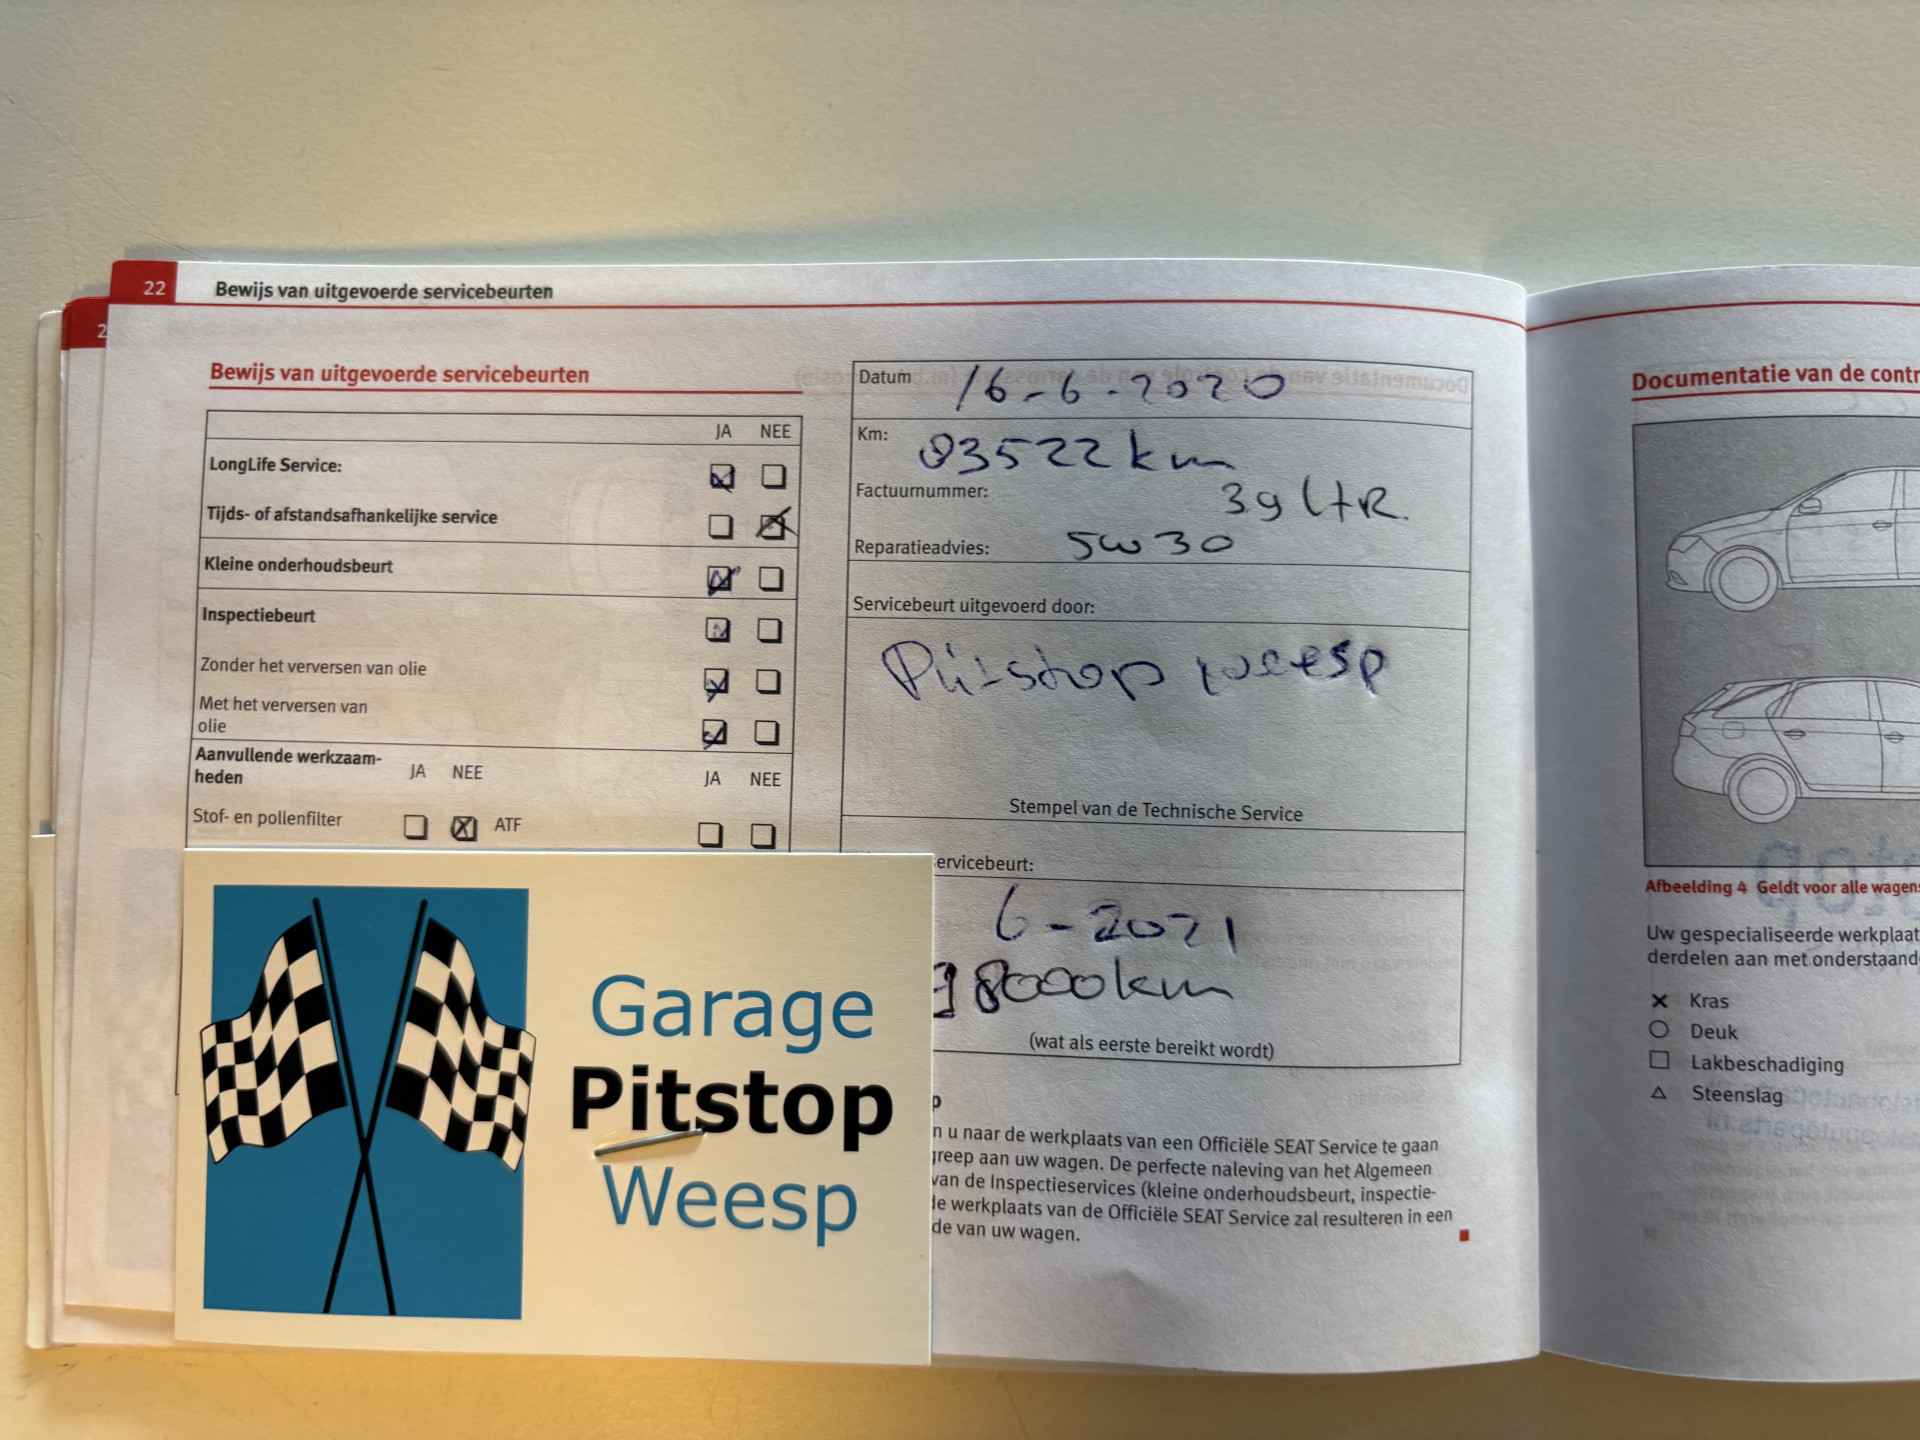 22 Bewijs van uitgevoerde servicebeurten
2
Bewijs van uitgevoerde servicebeurten
JA NEE
LongLife Service:
Tijds- of afstandsafhankelijke service
Kleine onderhoudsbeurt
Inspectiebeurt
Zonder het verversen van olie
Met het verversen van
olie
Aanvullende werkzaam-
heden
JA NEE
JA NEE
Stof- en pollenfilter
ATF
Datum 16-6-2020
Km: 83522 km
Factuurnummer: 39 LTR.
Reparatieadvies: 5W30
Servicebeurt uitgevoerd door:
Pitstop Weesp
Stempel van de Technische Service
ervicebeurt:
6-2021
98000km
(wat als eerste bereikt wordt)
p
n u naar de werkplaats van een Officiële SEAT Service te gaan
greep aan uw wagen. De perfecte naleving van het Algemeen
van de Inspectieservices (kleine onderhoudsbeurt, inspectie-
de werkplaats van de Officiële SEAT Service zal resulteren in een
de van uw wagen.
Garage
Pitstop
Weesp
Documentatie van de contr
Afbeelding 4 Geldt voor alle wagens
Uw gespecialiseerde werkplaat
derdelen aan met onderstaand
Kras
Deuk
Lakbeschadiging
Steenslag